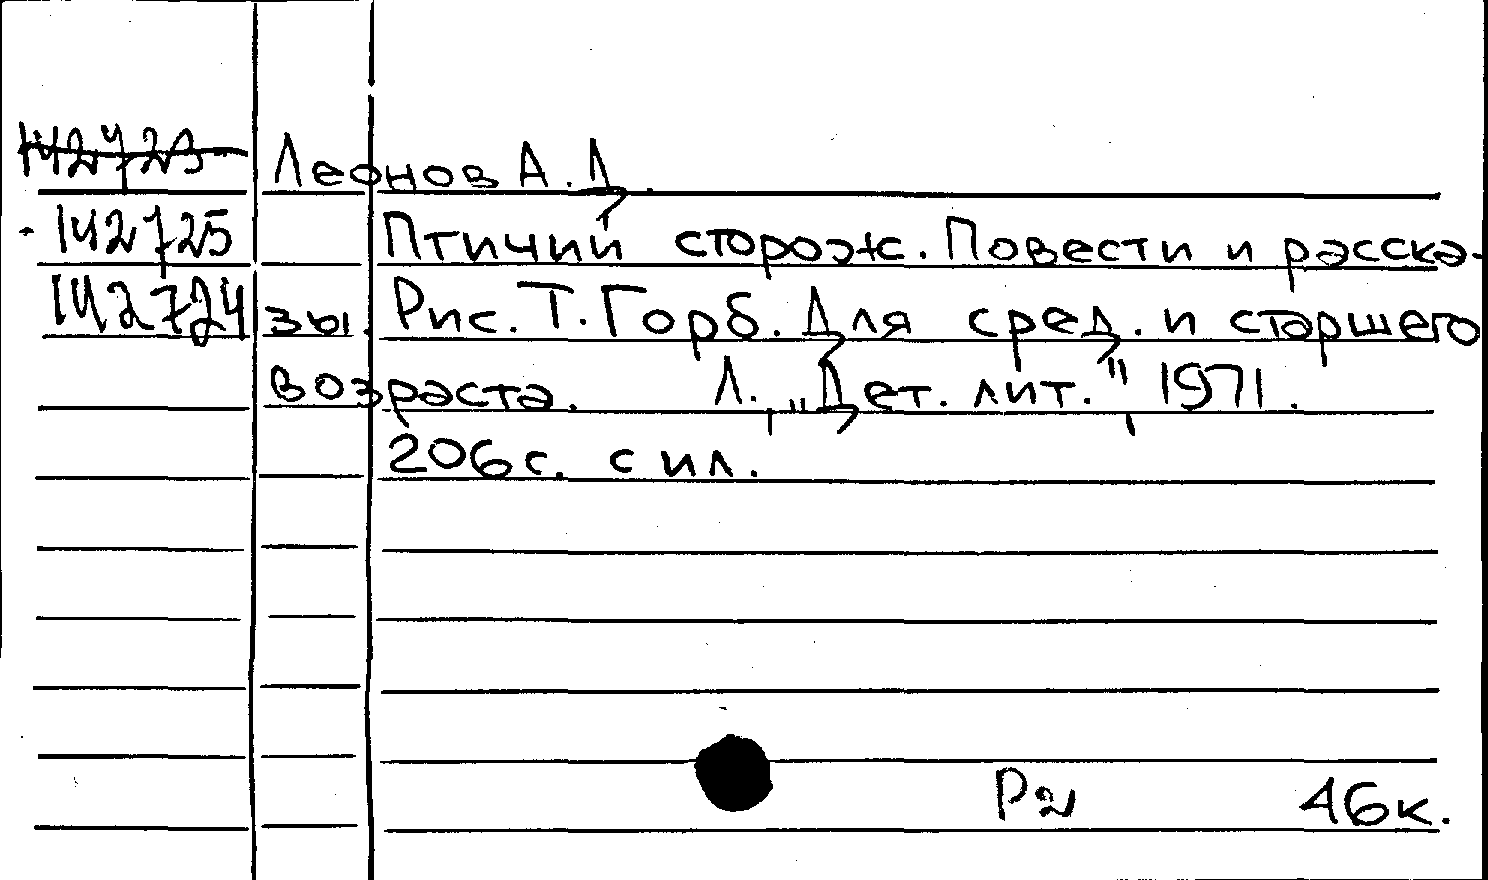 142723 Леонов А.Д.
142725 Птичий сторож. Повести и расска-
142724 зы. Рис. Т. Горб. Для сред. и старшего
возраста. Л., "Дет. лит.", 1971.
206с. с ил.
Р2 46к.